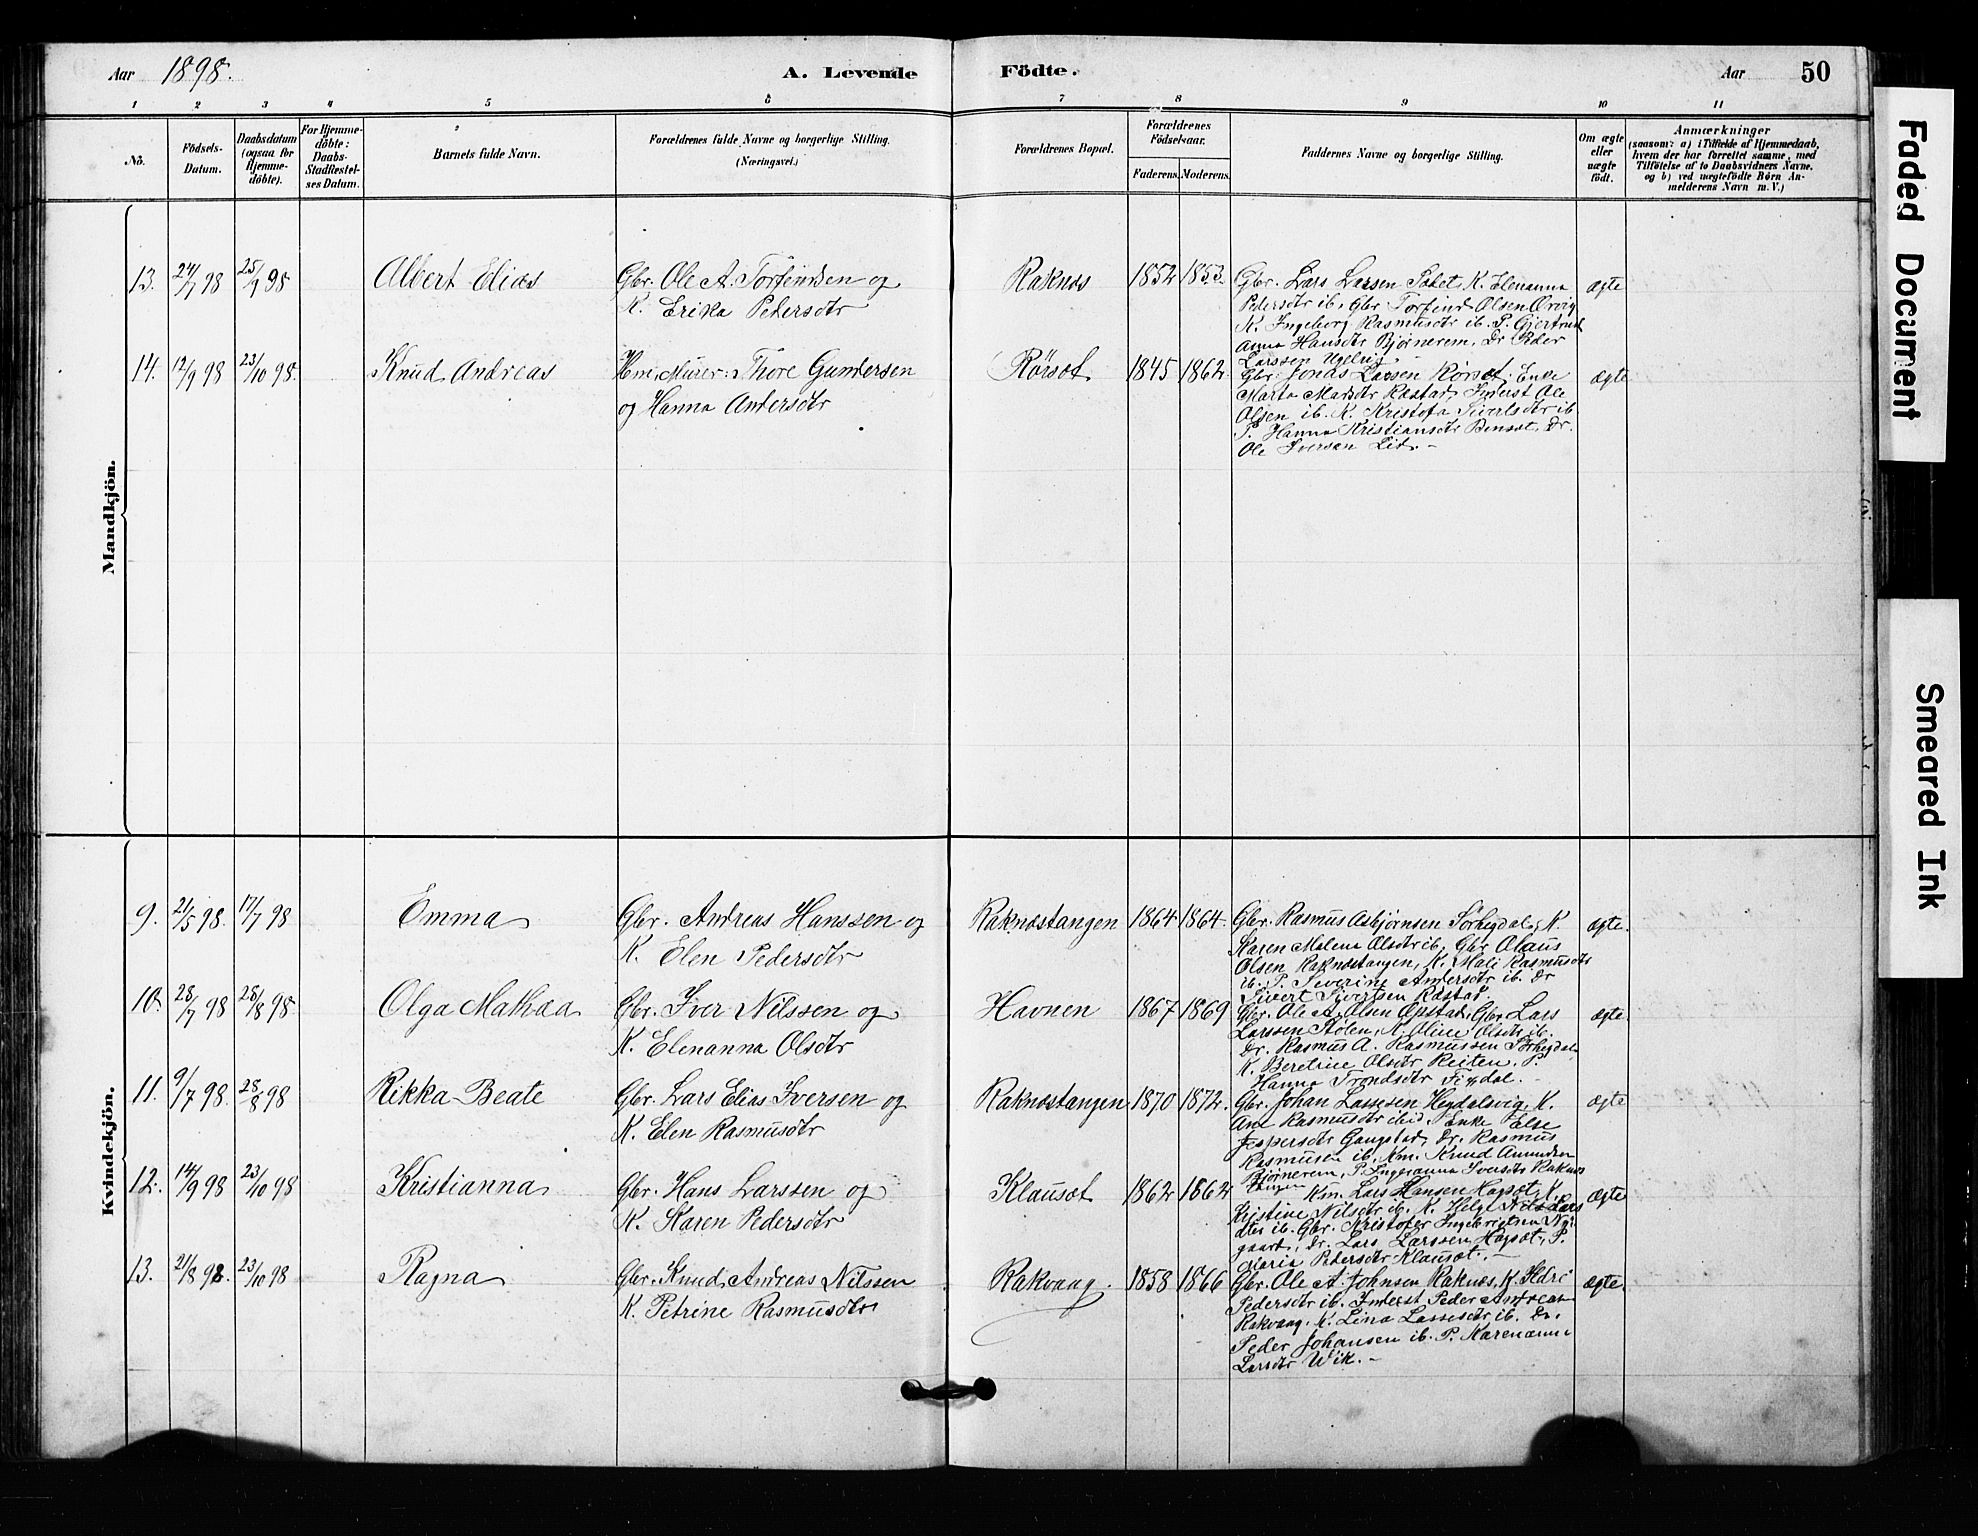 Aar 1898. A. Levende Födte. Aar 50
1 2 3 4 5 6 7 8 9 10 11
No. Födsels-Datum. Daabsdatum (ogsaa for Hjemme-döbte). For Hjemme-döbte: Daabs-Stadfæstel-ses Datum. Barnets fulde Navn. Forældrenes fulde Navne og borgerlige Stilling. (Næringsvei.) Forældrenes Bopæl. Forældrenes Födselsaar. Faderens. Moderens. Faddernes Navne og borgerlige Stilling. Om ægte eller uægte födt. Anmærkninger (saasom: a) i Tilfælde af Hjemmedaab, hvem der har forrettet samme, med Tilföielse af to Daabsvidners Navne. og b) ved uægtefödte Börn An-melderens Navn m. V.)
Mandkjön.
13. 24/7 98 25/9 98 Albert Elias Gbr. Ole A. Torfindsen og Raknæs 1852 1853. Gbr. Lars Larsen K. Elenanna ægte
K. Erika Pedersdtr
Pedersdtr ib, Gbr Torfind Olsen Ørvig
K. Ingeborg Rasmusdtr ib. P. Gjertrud
Anna Hansdtr Bjørnerem, Dr Peder
Larssen Ugelvig.
14. 12/9 98 23/10 98. Knud Andreas Hm. Murer: Thore Gundersen Rörset 1845 1862. Gbr. Jonas Larsen Rörset, Enke ægte
og Hanna Andersdtr
Marta Madsdtr Ræstad, Inderst Ole
Olsen ib. K. Kristofa Sivertsdtr ib
P. Hanna Kristiansdtr Benset, Dr.
Ole Iversen Lid. -
Kvindekjön.
9. 21/5 98. 17/7 98 Emma Gbr. Andreas Hanssen og Raknæstangen 1864 1864. Gbr. Rasmus Asbjörnsen Sörheydal, K. ægte.
K. Elen Pedersdtr
Karen Malena Olsdtr ib, Gbr Olaus
Olsen Raknæstangen, K. Mali Rasmusdtr
ib. P. Severine Andersdtr ib. Dr
Sivert Sivertsen Ræstad.
10. 28/7 98 28/8 98. Olga Mathea Gbr. Iver Nilssen og Havnen 1867 1869 Gbr. Ole A. Olsen Opstad, Gbr. Lars ægte.
K. Elenanna Olsdtr
Larssen Stölen, K. Oline Olsdtr ib.
Dr. Rasmus A. Rasmussen Sörheydal
K. Beretrine Olsdtr Reiten. P.
Hanna Trondsdtr Fixdal. -
11. 9/7 98. 28/8 98 Rikka Beate Gbr. Lars Elias Iversen og Raknæstangen 1870 1872. Gbr. Johan Lassesen Heydalsvig, K. ægte
K. Elen Rasmusdtr
Ane Rasmusdtr ibid. Enke Else
Jespersdtr Gangstad, Dr. Rasmus
Rasmusen ib, Km. Knud Amundsen
Bjørnerem, P. Ingeranna Iversdtr Raknæs
tangen
12. 14/9 98 23/10 98 Kristianna Gbr. Hans Larssen og Klauset 1862 1862 Km. Lars Hansen Hapset, K. ægte
K. Karen Pedersdtr
Kristine Nilsdtr ib. K. Helge Nils Lars
dtr ib. Gbr. Kristofer Ingebrigtsen Ny
gaard, Dr. Lars Larssen Hapset, P.
Maria Pedersdtr Klauset. -
13. 21/8 98. 23/10 98 Ragna Gbr. Knud Andreas Nilssen Rakvaag. 1858 1866 Gbr. Ole A. Johnsen Raknæs, K. Ildri ægte.
K. Petrine Rasmusdtr
Pedersdtr ib. Inderst Peder Andreas
Rakvaag, K. Lina Lassesdtr ib. Dr.
Peder Johansen ib. P. Karenanne
Larsdtr Wik. -
Faded Document
Smeared Ink